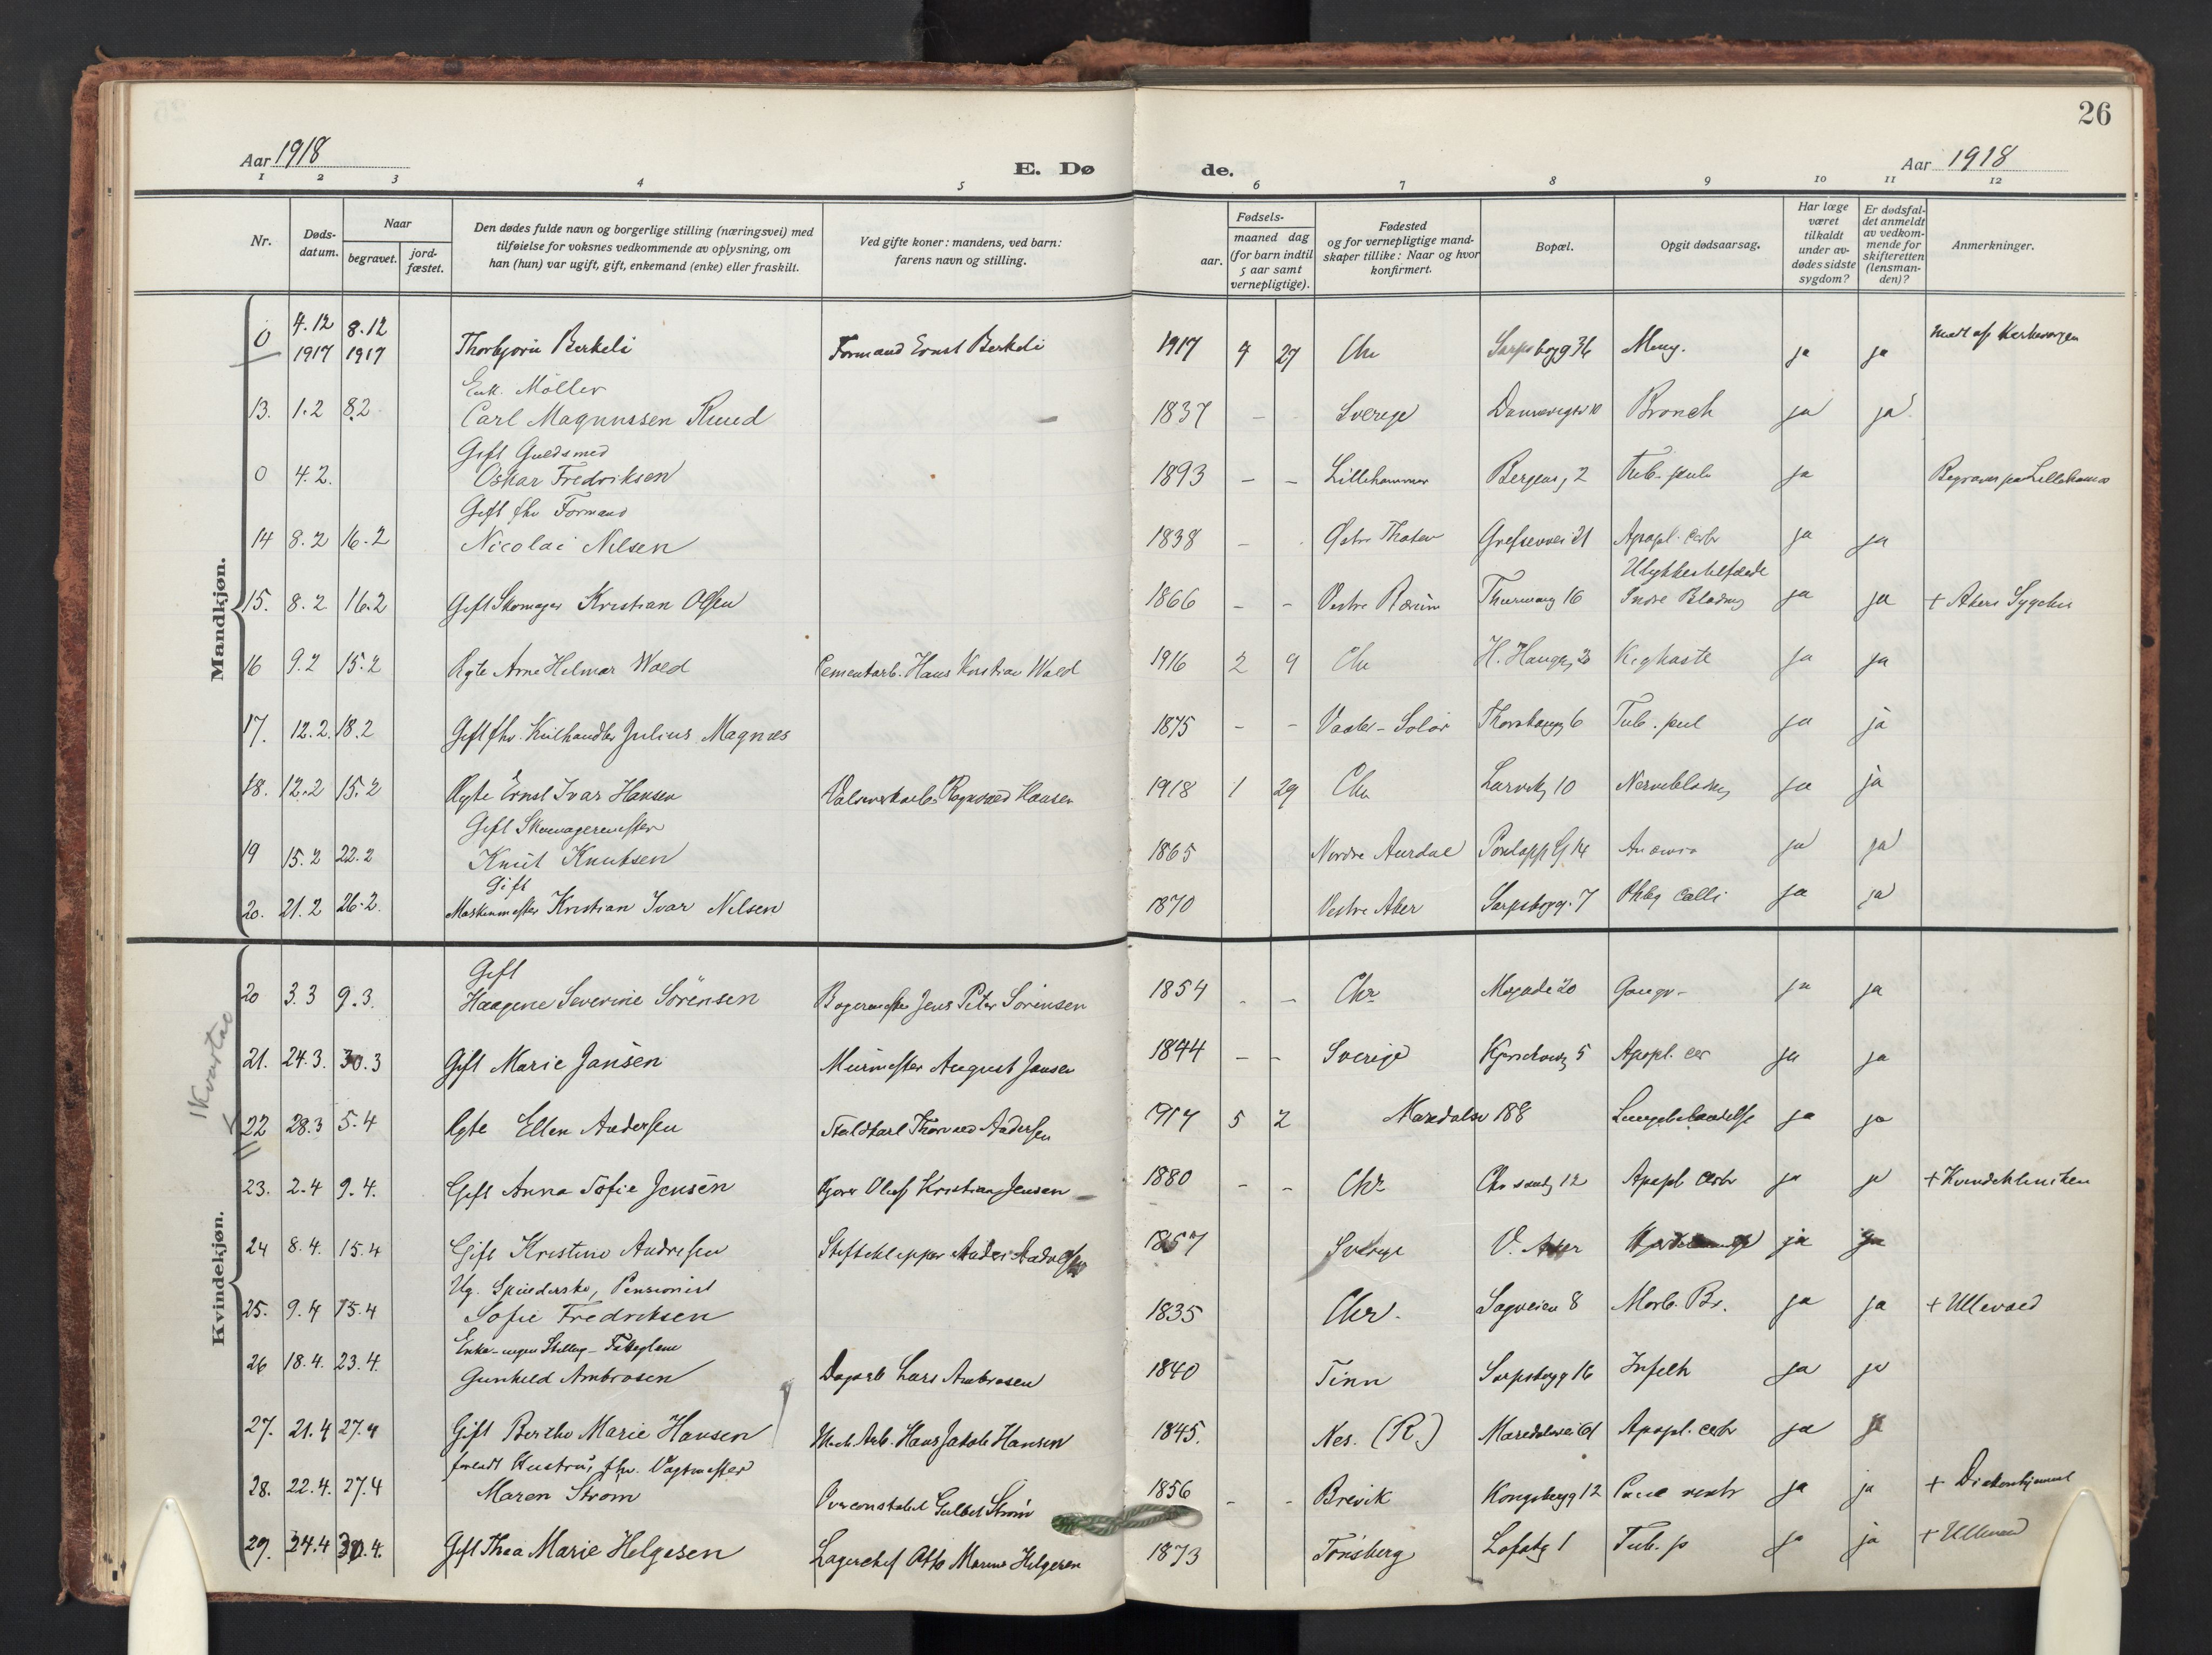 26
Aar 1918
E. Dø
de.
Aar 1918
1 2 3 4 5 6 7 8 9 10 11 12
Nr.
Døds-
datum.
Naar
begravet.
jord-
fæstet.
Den dødes fulde navn og borgerlige stilling (næringsvei) med
tilføielse for voksnes vedkommende av oplysning, om
han (hun) var ugift, gift, enkemand (enke) eller fraskilt.
Ved gifte koner: mandens, ved barn:
farens navn og stilling.
Fødsels-
aar.
maaned dag
(for barn indtil
5 aar samt
vernepligtige).
Fødested
og for vernepligtige mand-
skaper tillike: Naar og hvor
konfirmert.
Bopæl.
Opgit dødsaarsag.
Har læge
været
tilkaldt
under av-
dødes sidste
sygdom?
Er dødsfal-
det anmeldt
av vedkom-
mende for
skifteretten
(lensman-
den)?
Anmerkninger.
Mandkjøn.
0 4.12 1917 8.12 1917 Thorbjørn Berkeli Formand Ernst Berkeli 1917 9 27 Chr Sarpsborgg 36 Meng. ja ja
Enk. Möller
13. 1.2 8.2 Carl Magnussen Ruud 1837 – Sverige Bronch ja ja
Gift Guldsmed
0 4.2. Oskar Fredriksen 1893 – – Lillehammer Bergens, 2 Tub. pulm ja
Gift fhv Formand
14 8.2 16.2 Nicolai Nilsen 1838 – Østre Grefsenvei 21 Apopl. cerbr ja ja
15. 8.2 16.2 Gift Skomager Kristian Olsen 1866 – – Vestre 16 Indre Blødng ja ja + Akers Sygehus
16 9.2 15.2 Ægte Arne Helmar Wold Cementarb. Hans Kristian Wold 1916 2 9 Chr H. Hauges, 20 Kighoste ja ja
17. 12.2. 18.2 Gift fhv. Kulhandler Julius Magnæs 1875 – – Vaaler – Solör 6 Tub. pul ja ja
18. 12.2 15.2 Ægte Ernst Ivar Hansen Ragnvald Hansen 1918 1 29 Chr Larvikg 10 ja ja
Gift Skomagermester
19 15.2 22.2 Knut Knutsen 1865 Nordre Aurdal ja ja
Gift
20. 21.2 26.2. Maskinmester Kristian Ivar Nilsen 1870 Vestre Aker Sarpsborgg. 7 ja ja
Kvindekjøn.
Gift
20 3.3 9.3. Haagine Severine Sörensen Bagermester Jens Peter Sörensen 1854 – – Chr 20 Gangr – ja ja
21. 24.3. 30.3 Gift Marie Jansen Murmester August Jansen 1844 – – Sverige Apopl. cer ja ja
1 Kvartal
22 28.3 5.4 Ægte Ellen Andersen Staldkarl Thorvald Andersen 1917 5 2 Maridalsv 188 Lungebetændelse ja ja
23. 2.4 9.4. Gift Anna Sofie Jensen Oluf Kristian Jensen 1880 – – Chr 12 Apopl cerbr ja ja + Kvindekliniken
24 8.4. 15.4 Gift Kristine Andresen 1857 Sverige V. Aker ja ja
Ug. Spinderske, Pensionist
25. 9.4 15.4 Sofie Fredriksen 1835 Chr. Sagveien 8 Morb. Br. ja ja + Ullevaal
Enke – ingen Stilling –
26 18.4. 23.4. Gunhild Ambrosen Dagarb Lars Ambrosen 1840 Tinn Sarpsborgg 16 ja ja
27. 21.4 27.4 Gift Berthe Marie Hansen Mek. Arb. Hans Jakob Hansen 1845. Nes. (R.) Maridalsvei 61 Apopl. cerbr ja ja
Hustru, fhv. Vagtmester
28. 22.4. 27.4 Maren Strøm Overconstabel Gulbr. Strøm 1856 – – Brevik Kongsbergg 12 ja ja + Diakonhjemmet
29. 24.4 30.4. Gift Thea Marie Helgesen Lagerchef Otto Marius Helgesen 1873 Tönsberg Lofotg 1 Tub. p ja ja + Ullevaal